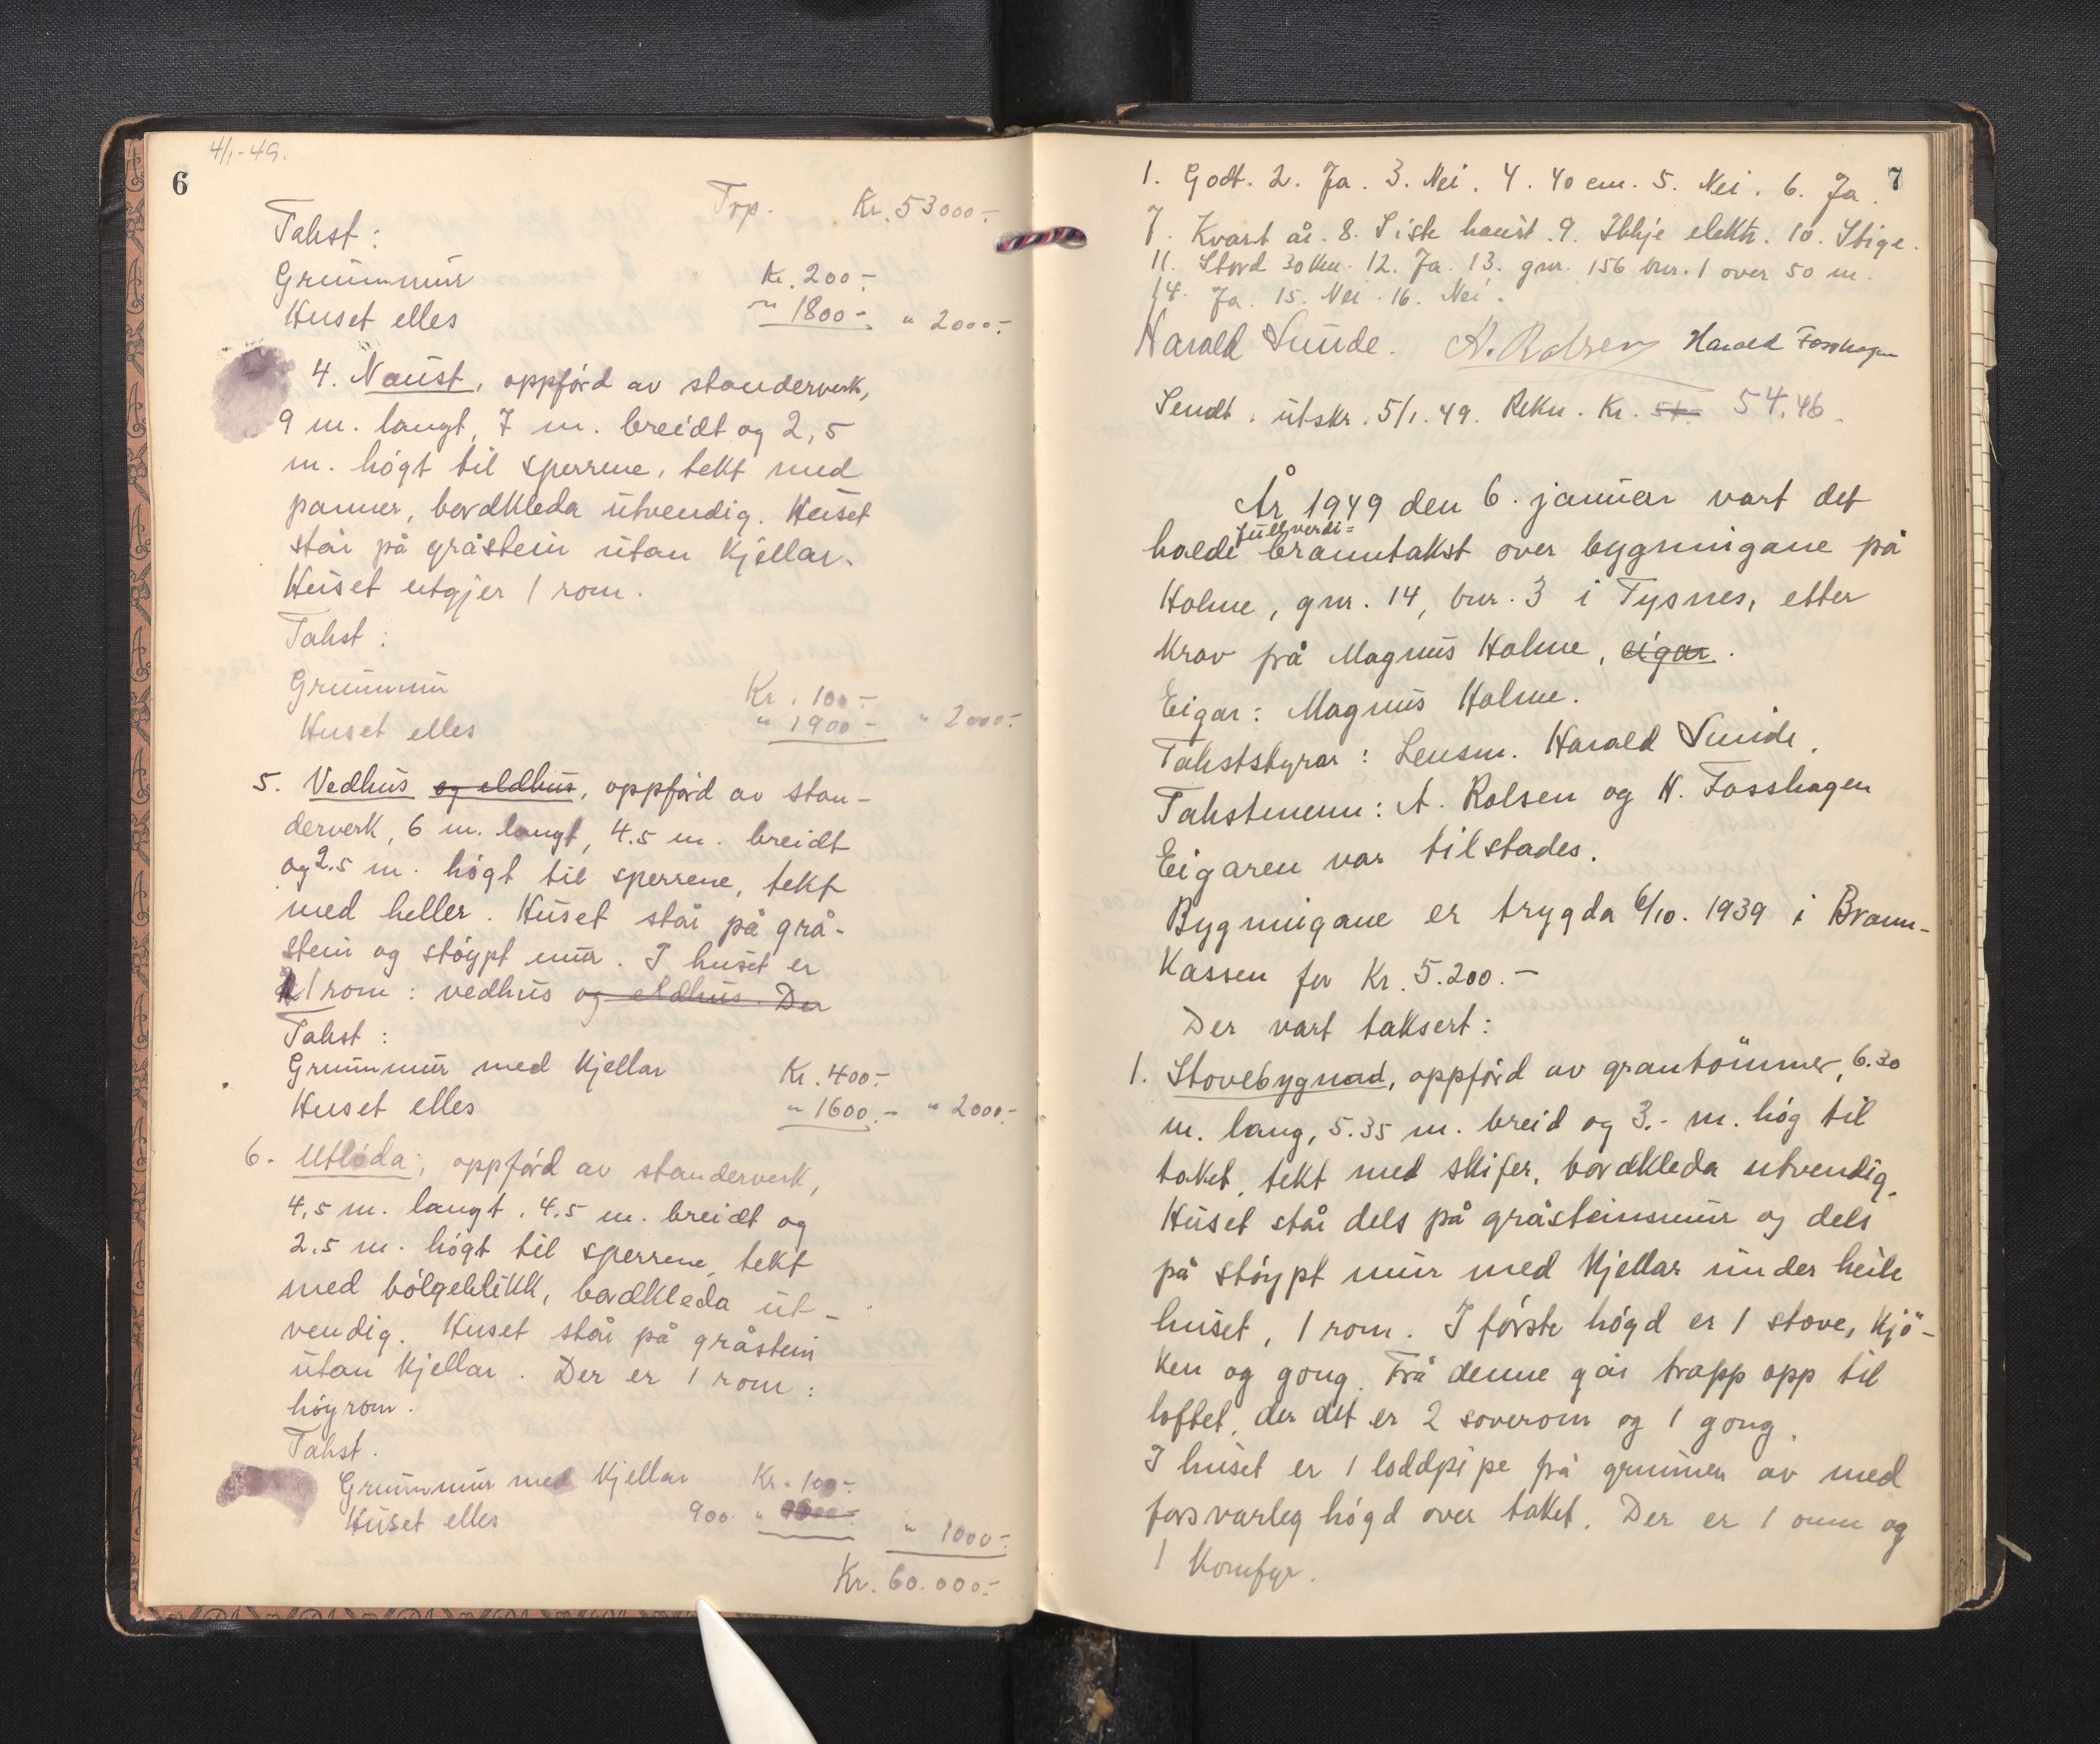 4/1-49.
6
Trp. Kr. 53000.-
Takst:
Grunnmur Kr. 200.-
Huset elles " 1800.- " 2000.-
4. Naust, oppførd av standerverk,
9 m. langt, 7 m. breidt og 2,5
m. högt til sperrene, tekt med
panner, bordkleda utvendig. Huset
står på gråstein utan kjellar.
Huset utgjer 1 rom.
Takst:
Grunnmur Kr. 100.-
Huset elles " 1900.- " 2000.-
5. Vedhus og eldhus, oppförd av stan-
derverk, 6 m. langt, 4.5 m. breidt
og 2.5 m. högt til sperrene, tekt
med heller. Huset står på grå-
stein og stöypt mur. I huset er
1 rom: vedhus og eldhus. Der
Takst:
Grunnmur med kjellar Kr. 400.-
Huset elles " 1600.- " 2000.-
6. Utlöda, oppförd av standerverk,
4,5 m. langt, 4.5 m. breidt og
2.5 m. högt til sperrene, tekt
med bölgeblikk, bordkleda ut-
vendig. Huset står på gråstein
utan kjellar. Der er 1 rom:
höyrom.
Takst.
Grunnmur med kjellar Kr. 100.-
Huset elles 900 " " 1000.-
Kr. 60.000.-
7
1. Godt. 2. Ja. 3. Nei. 4. 40 cm. 5. Nei. 6. Ja.
7. Kvart år. 8. Siste haust. 9. Ikkje elektr. 10. Stige.
11. Stord 30 km. 12. Ja. 13. gnr. 156 bnr. 1 over 50 m.
14. Ja. 15. Nei. 16. Nei.
Harald Sunde. A. Rolsen Harald Fosshagen
Sendt. utskr. 5/1. 49. Rekn. Kr. 54. 54.46.
År 1949 den 6. januar vart det
halde fullverdi=branntakst over bygningane på
Holme, gnr. 14, bnr. 3 i Tysnes, etter
krav frå Magnus Holme, eigar.
Eigar: Magnus Holme.
Takststyrar: Lensm. Harald Sunde.
Takstmenn: A. Rolsen og H. Fosshagen
Eigaren var tilstades.
Bygningane er trygda 6/10. 1939 i Brann-
kassen for Kr. 5.200.-
Der vart taksert:
1. Stovebygnad, oppförd av grantömmer, 6.30
m. lang, 5.35 m. breid og 3.- m. hög til
taket, tekt med skifer, bordkleda utvendig.
Huset står dels på gråsteinsmur og dels
på stöypt mur med kjellar under heile
huset, 1 rom. I förste högd er 1 stove, kjö-
ken og gong. Frå denne går trapp opp til
loftet, der det er 2 soverom og 1 gong.
I huset er 1 loddpipe frå grunnen av med
forsvarleg högd over taket. Der er 1 omn og
1 komfyr.